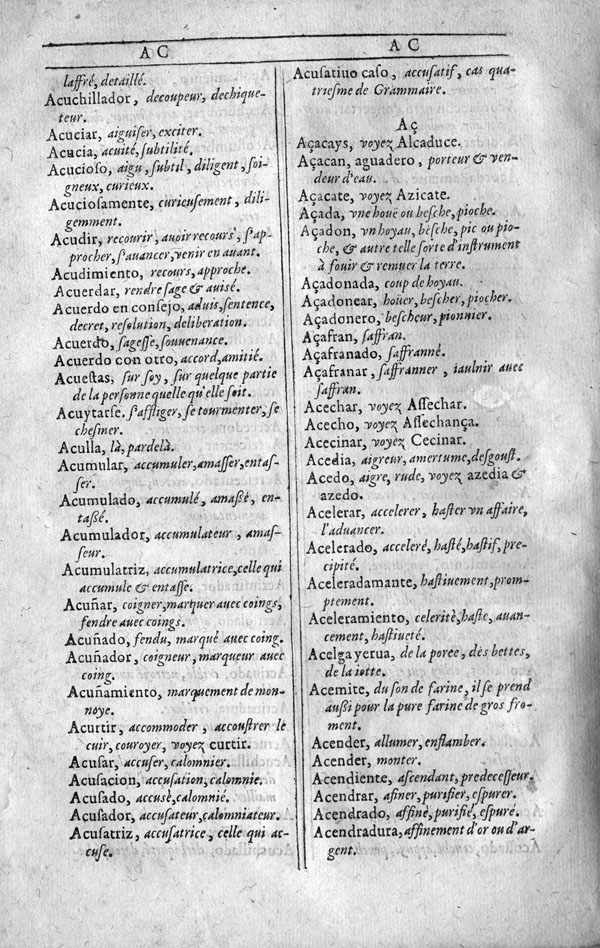 AC
AC
laffré, detaillé.
Acuchillador, decoupeur, dechique-
teur.
Acuciar, aiguiser, exciter.
Acucia, acuité, subtilité.
Acucioso, aigu, subtil, diligent, soi-
gneux, curieux.
Acuciosamente, curieusement, dili-
gemment.
Acudir, recourir, auoir recours, s'ap-
procher, s'auancer, venir en auant.
Acudimiento, recours, approche.
Acuerdar, rendre sage & auisé.
Acuerdo en consejo, aduis, sentence,
decret, resolution, deliberation.
Acuerdo, sagesse, souuenance.
Acuerdo con otro, accord, amitié.
Acuestas, sur soy, sur quelque partie
de la personne quelle qu'elle soit.
Acuytarse. s'affliger, se tourmenter, se
chesmer.
Aculla, là, par delà.
Acumular, accumuler, amasser, entas-
ser.
Acumulado, accumulé, amaßé, en-
taßé.
Acumulador, accumulateur, amas-
seur.
Acumulatriz, accumulatrice, celle qui
accumule & entasse.
Acuñar, coigner, marquer auec coings,
fendre auec coings.
Acuñado, fendu, marqué auec coing.
Acuñador, coigneur, marqueur auec
coing.
Acuñamiento, marquement de mon-
noye.
Acurtir, accommoder, accoustrer le
cuir, couroyer, voyez curtir.
Acusar, accuser, calomnier.
Acusacion, accusation, calomnie.
Acusado, accusè, calomnié.
Acusador, accusateur, calomniateur.
Acusatriz, accusatrice, celle qui ac-
cuse.
Acusatiuo caso, accusatif, cas qua-
triesme de Grammaire.
Aç
Açacays, voyez Alcaduce.
Açacan, aguadero, porteur & ven-
deur d'eau.
Açacate, voyez Azicate.
Açada, vne houë ou besche, pioche.
Açadon, vn hoyau, bèsche, pic ou pio-
che, & autre telle sorte d'instrument
à fouir & remuer la terre.
Açadonada, coup de hoyau.
Açadonear, houër, bescher, piocher.
Açadonero, bescheur, pionnier.
Açafran, saffran.
Açafranado, saffranné.
Açafranar, saffranner, iaulnir auec
saffran.
Acechar, voyez Assechar.
Acecho, voyez Assechança.
Acecinar, voyez Cecinar.
Acedia, aigreur, amertume, desgoust.
Acedo, aigre, rude, voyez azedia &
azedo.
Acelerar, accelerer, haster vn affaire,
l'aduancer.
Acelerado, acceleré, hasté, hastif, pre-
cipité.
Aceleradamante, hastiuement, prom-
ptement.
Aceleramiento, celeritè, haste, auan-
cement, hastiueté.
Acelga yerua, de la poree, dès bettes,
de la iotte.
Acemite, du son de farine, il se prend
außi pour la pure farine de gros fro-
ment.
Acender, allumer, enflamber.
Acender, monter.
Acendiente, ascendant, predecesseur.
Acendrar, afiner, purifier, espurer.
Acendrado, affinè, purifié, espuré.
Acendradura, affinement d'or ou d'ar-
gent.